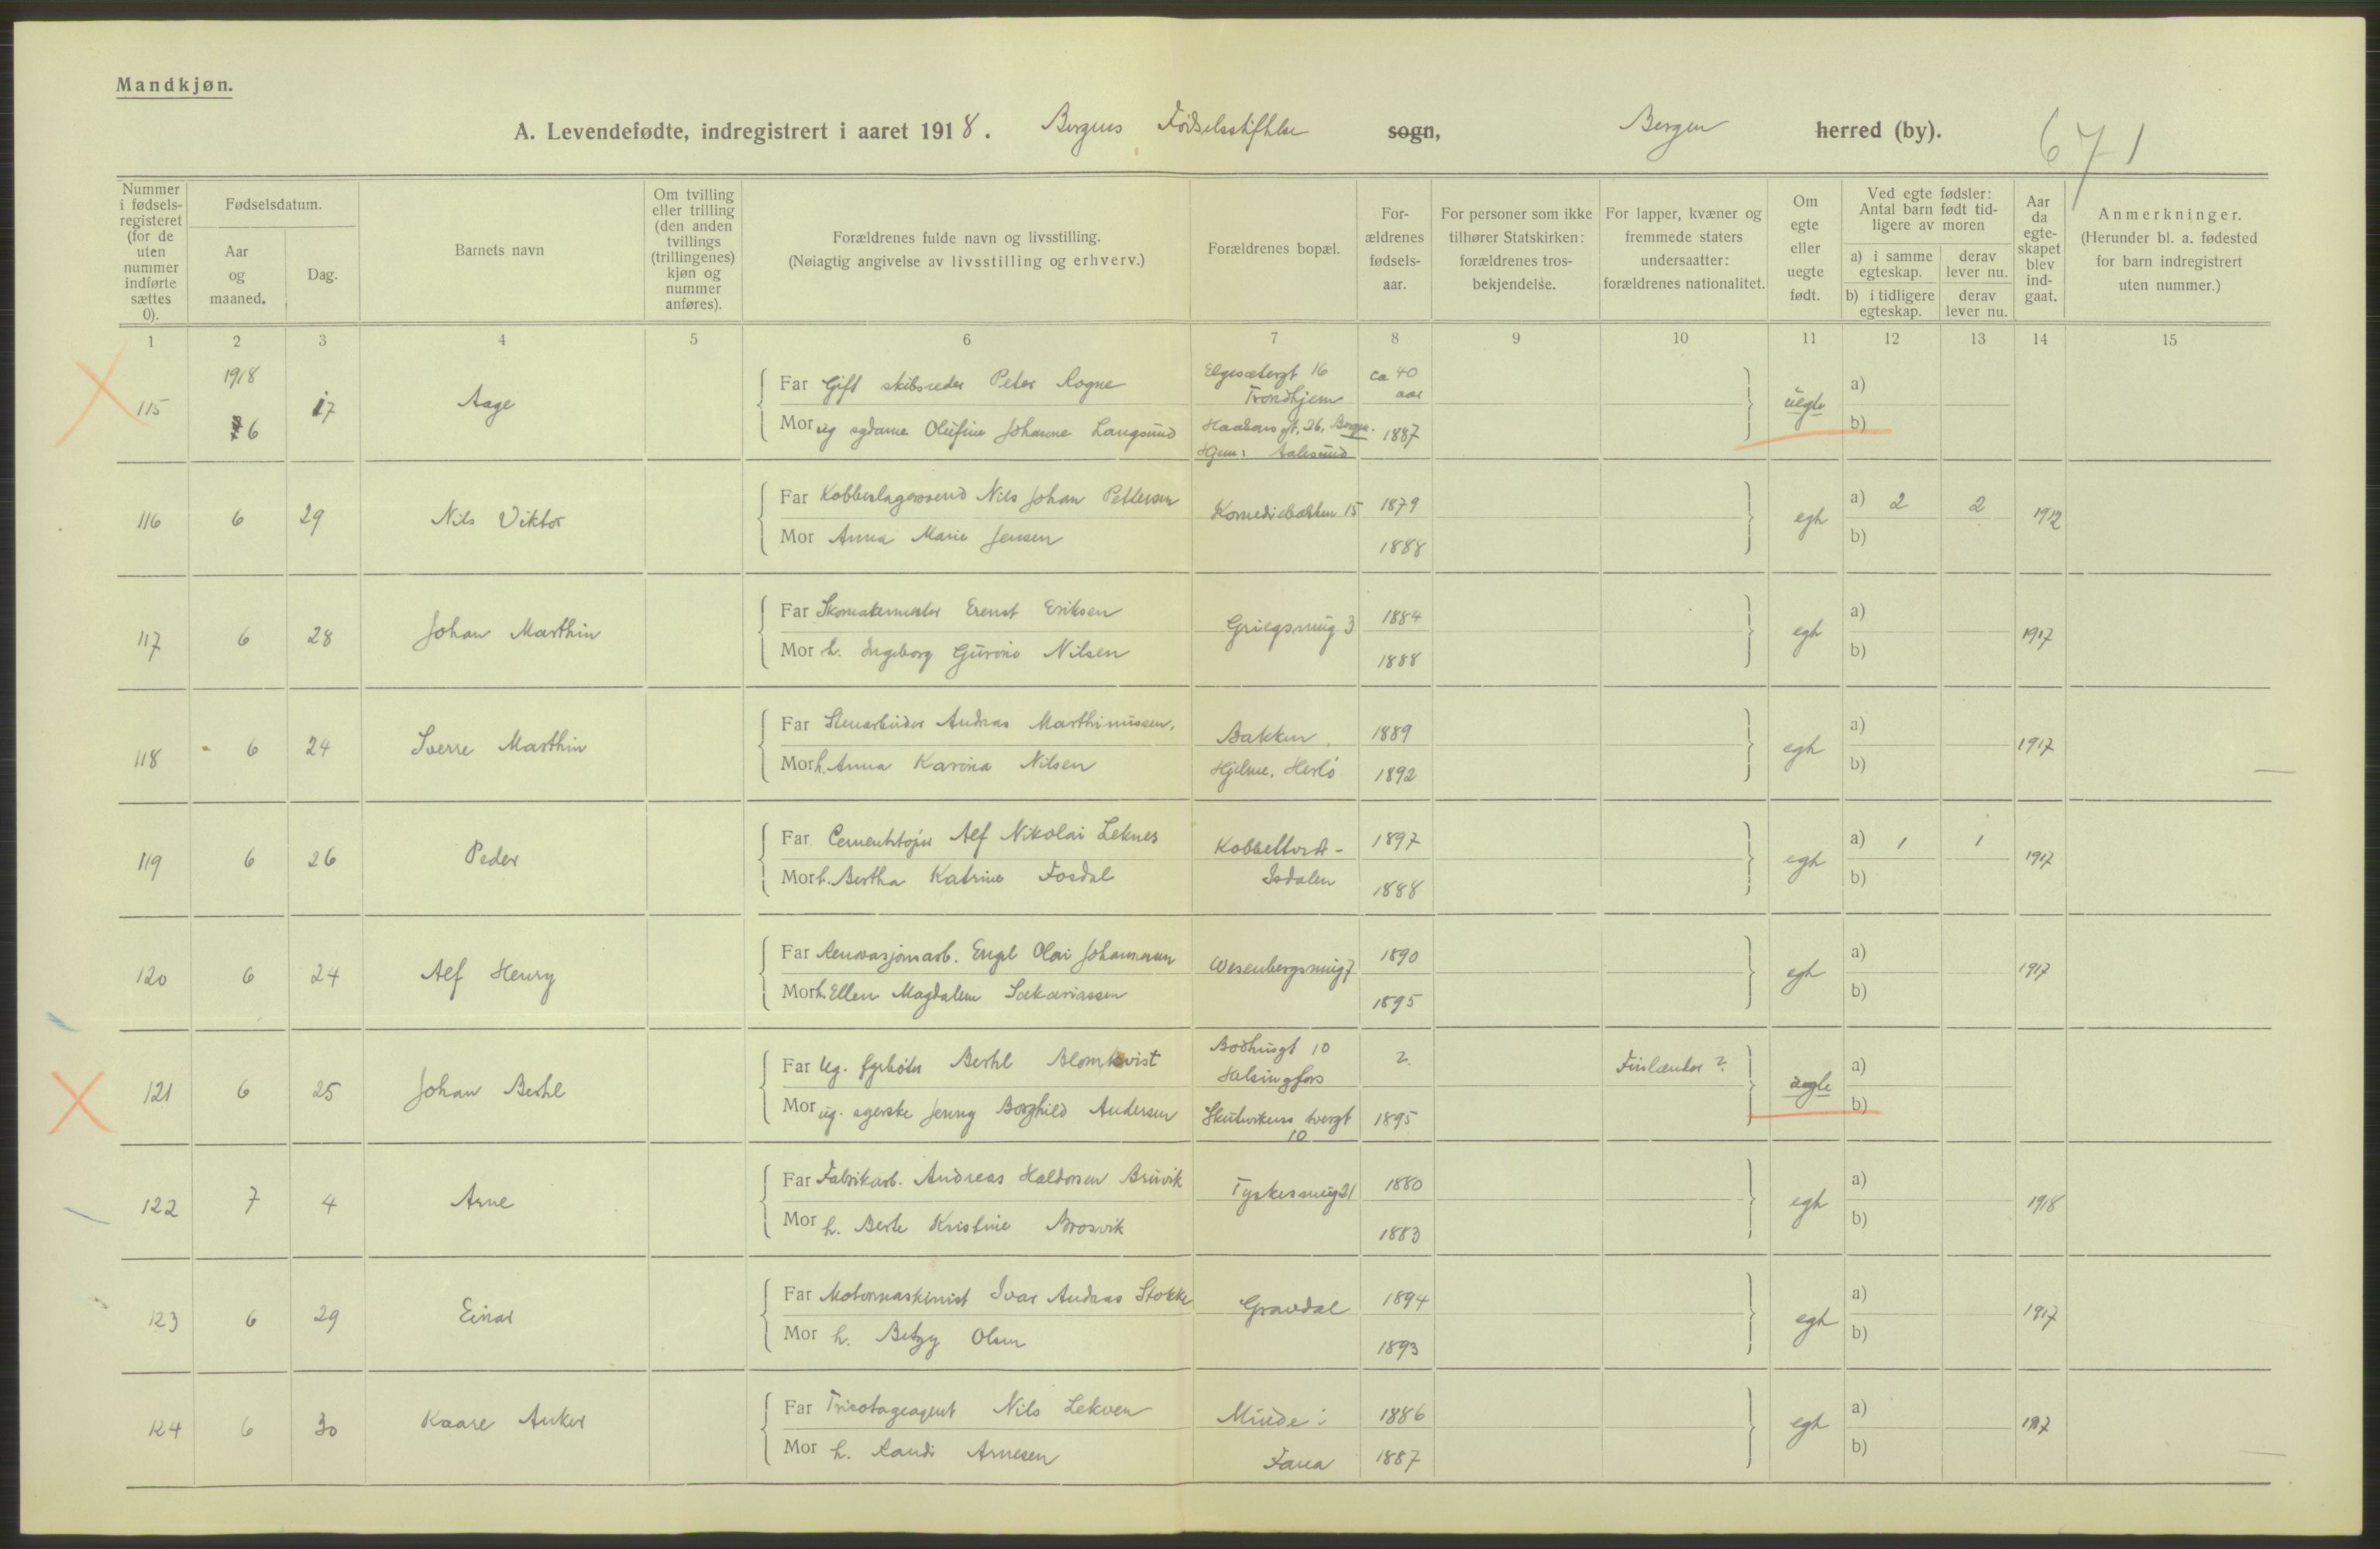 Mandkjøn.
A. Levendefødte, indregistrert i aaret 1918. Bergens Fødselsstiftelse sogn, Bergen herred (by). 671
Nummer i fødselsregisteret (for de uten nummer indførte sættes 0).
Fødselsdatum.
Aar og maaned.
Dag.
Barnets navn
Om tvilling eller trilling (den anden tvillings (trillingenes) kjøn og nummer anføres).
Forældrenes fulde navn og livsstilling.
(Nøiagtig angivelse av livsstilling og erhverv.)
Forældrenes bopæl.
Forældrenes fødselsaar.
For personer som ikke tilhører Statskirken: forældrenes trosbekjendelse.
For lapper, kvæner og fremmede staters undersaatter: forældrenes nationalitet.
Om egte eller uegte født.
Ved egte fødsler: Antal barn født tidligere av moren
a) i samme egteskap.
derav lever nu.
b) i tidligere egteskap.
derav lever nu.
Aar da egteskapet blev indgaat.
Anmerkninger.
(Herunder bl. a. fødested for barn indregistrert uten nummer.)
1 2 3 4 5 6 7 8 9 10 11 12 13 14 15
1918
115 6 17 Aage
Far Gift skibsreder Peter Rogne Elgesætergt 16 Trondhjem ca 40 aar
Mor ug sydame Olufine Johanne Langsund gt. 26, Bergen. Hjem: Aalesund 1887
uegte a) b)
116 6 29 Nils Viktor
Far Kobberslagersvend Nils Johan Pettersen Komediebakken 15 1879
Mor Anna Marie Jensen 1888
egte a) 2 2 b) 1912
117 6 28 Johan Marthin
Far Skomakermester Ernst Eriksen Griegsmug 3 1884
Mor h. Ingeborg Gurine Nilsen 1888
egte a) b) 1917
118 6 24 Sverre Marthin
Far Stenarbeider Andreas Marthinussen, Bakken, 1889
Mor h. Anna Karina Nilsen Hjelme, Herlö 1892
egte a) b) 1917
119 6 26 Peder
Far Alf Nikolai Leknes Kobbeltvedt- 1897
Mor h. Bertha Katrine Fosdal Isdalen 1888
egte a) 1 1 b) 1917
120 6 24 Alf Henry
Far Renovasjonsarb. Engel Olai Johannesen Wesenbergsmug 7 1890
Mor h. Ellen Magdalene Sakariassen 1895
egte a) b) 1917
121 6 25 Johan Bertil
Far Ug. fyrbøter Bertil Blomkvist Bodhusgt 10 Helsingfors ? Finlænder ?
Mor ug. syerske Jenny Borghild Andersen Skutevikens tvergt 10 1895
uegte a) b)
122 7 4 Arne
Far Fabrikarb. Andreas Haldorsen Bruvik Tyskesmug 21 1880
Mor h. Berte Kristine Brosvik 1883
egte a) b) 1918
123 6 29 Einar
Far Motormaskinist Ivar Andreas Stokke Gravdal 1894
Mor h. Betzy Olsen 1893
egte a) b) 1917
124 6 30 Kaare Anker
Far Tricotageagent Nils Lekven Minde i 1886
Mor h. Randi Arnesen Fana 1887
egte a) b) 1917